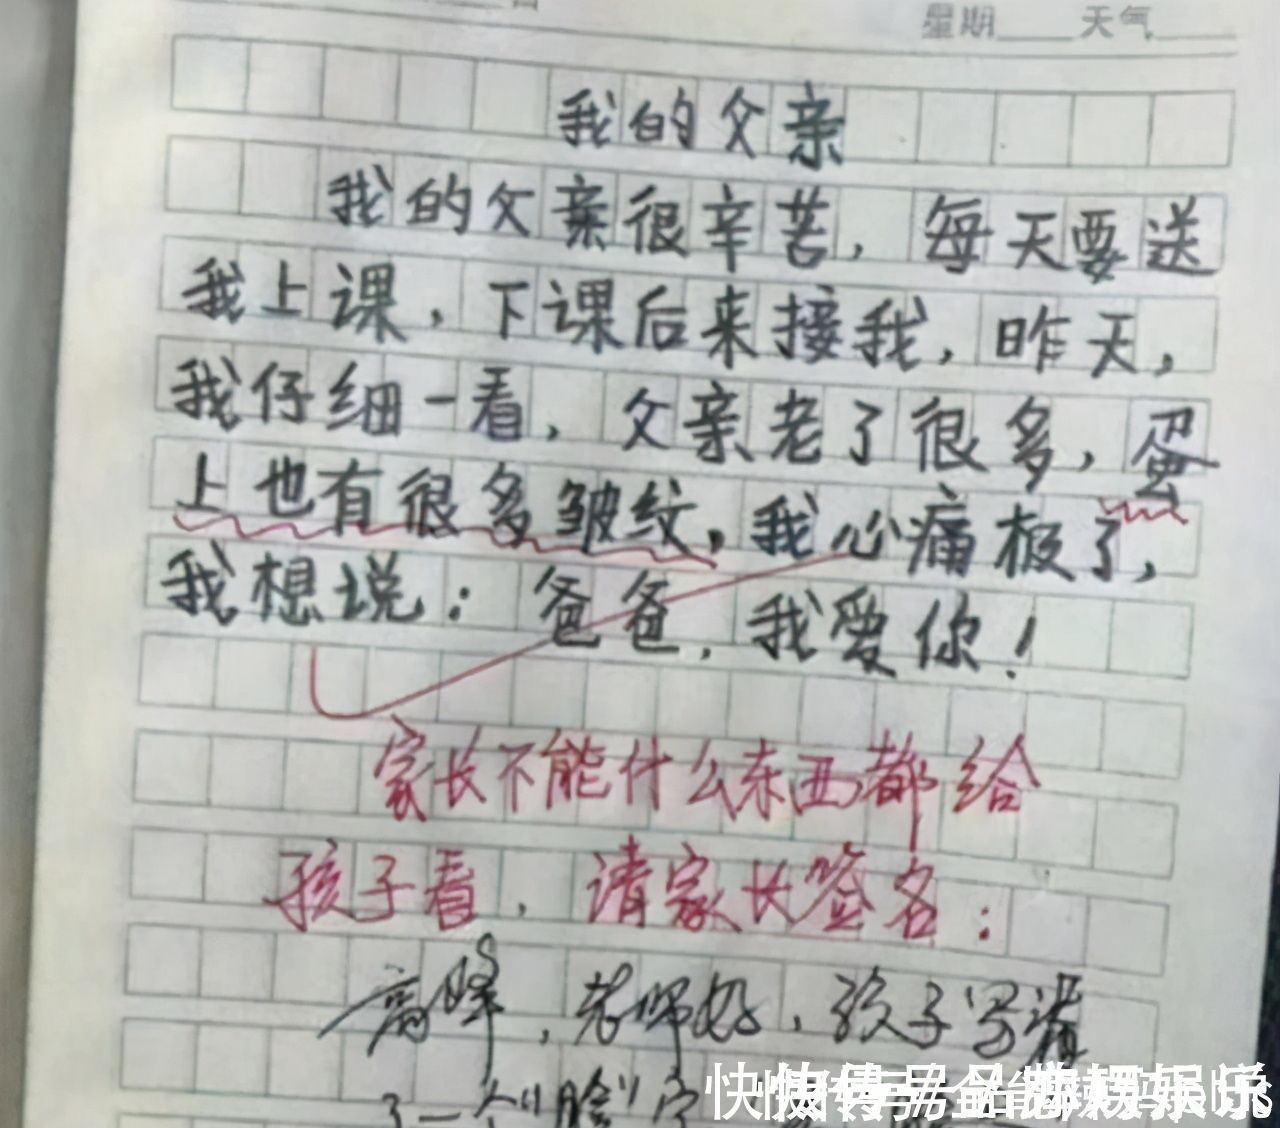 星期 天气
我的父亲
我的父亲很辛苦，每天要送
我上课，下课后来接我，昨天，
我仔细一看，父亲老了很多，蛋
上也有很多皱纹，我心痛极了，
我想说：爸爸，我爱你！
家长不能什么东西都给
孩子看，请家长签名：
高峰，老师好，孩子写错
了一个"脸"字